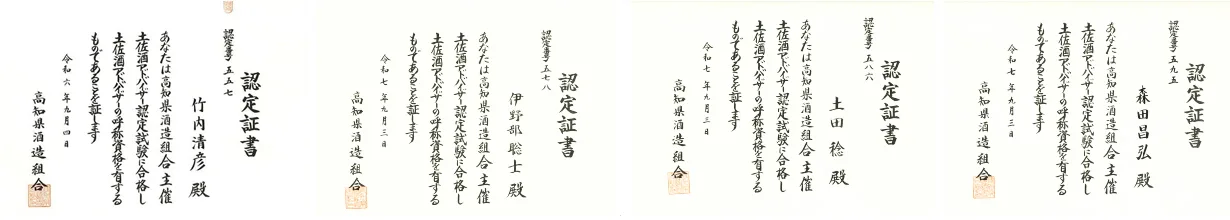 認定証書
認定番号 五五七
竹内清彦 殿
あなたは高知県酒造組合主催
土佐酒アドバイザー認定試験に合格し
土佐酒アドバイザーの呼称資格を有する
ものであることを証します
令和六年九月四日
高知県酒造組合
認定証書
認定番号 五七八
伊野部聡士 殿
あなたは高知県酒造組合主催
土佐酒アドバイザー認定試験に合格し
土佐酒アドバイザーの呼称資格を有する
ものであることを証します
令和七年九月三日
高知県酒造組合
認定証書
認定番号 五八六
土田 稔 殿
あなたは高知県酒造組合主催
土佐酒アドバイザー認定試験に合格し
土佐酒アドバイザーの呼称資格を有する
ものであることを証します
令和七年九月三日
高知県酒造組合
認定証書
認定番号 五九五
森田昌弘 殿
あなたは高知県酒造組合主催
土佐酒アドバイザー認定試験に合格し
土佐酒アドバイザーの呼称資格を有する
ものであることを証します
令和七年九月三日
高知県酒造組合